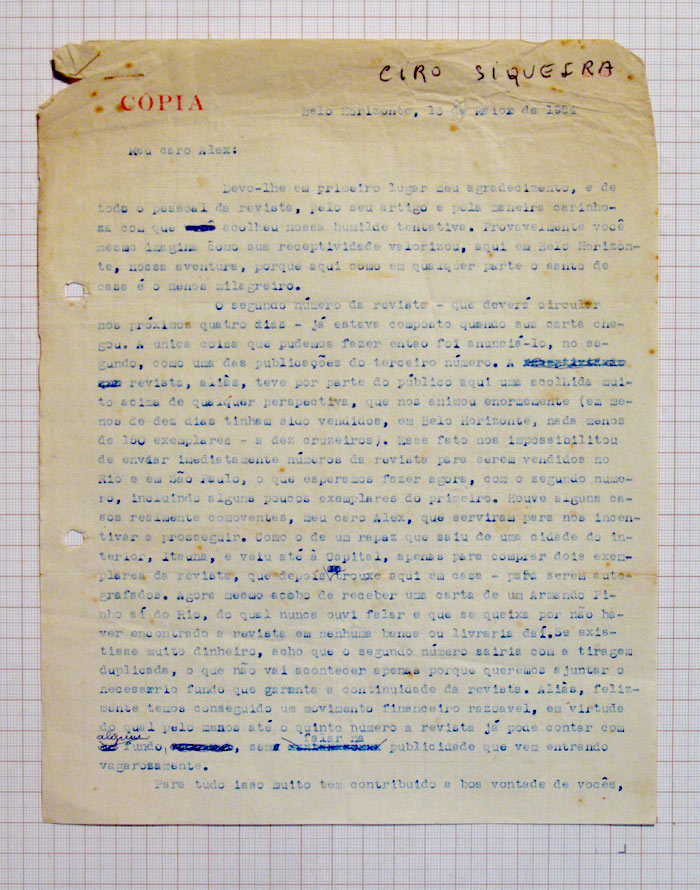 CIRO SIQUEIRA
CÓPIA
Belo Horizonte, 13 de Maior de 1954
Meu caro Alex:
Devo-lhe em primeiro lugar meu agradecimento, e de
todo o pessoal da revista, pelo seu artigo e pela maneira carinho-
za com que acolheu nossa humilde tentativa. Provavelmente você
mesmo imagina como sua receptividade valorizou, aqui em Belo Horizon-
te, nossa aventura, porque aqui como em qualquer parte o santo de
casa é o menos milagreiro.
O segundo número da revista - que deverá circular
nos próximos quatro dias - já estava composto quando sua carta che-
gou. A unica coisa que pudemos fazer entao foi anunciá-lo, no se-
gundo, como uma das publicações do terceiro número. A
revista, aliàs, teve por parte do público aqui uma acolhida mui-
to acima de qualquer perspectiva, que nos animou enormemente (em me-
nos de dez dias tinham sido vendidos, em Belo Horizonte, nada menos
de 150 exemplares - a dez cruzeiros). Esse fato nos impossibilitou
de enviar imediatamente números da revista para serem vendidos no
Rio e em São Paulo, o que esperamos fazer agora, com o segundo nume-
ro, incluindo alguns poucos exemplares do primeiro. Houve alguns ca-
sos realmente comoventes, meu caro Alex, que serviram para nos incen-
tivar a prosseguir. Como o de um rapaz que saiu de uma cidade do in-
terior, Itauna, e veiu até à Capital, apenas para comprar dois exem-
plares da revista, que depois os trouxe aqui em casa - para serem auto-
grafados. Agora mesmo acabo de receber uma carta de um Armando Pi-
nho aí do Rio, do qual nunca ouvi falar e que se queixa por não ha-
ver encontrado a revista em nenhuma banca ou livraria daí. Se exis-
tisse muito dinheiro, acho que o segundo número sairia com a tiragem
duplicada, o que não vai acontecer apenas porque queremos ajuntar o
necessário fundo que garanta a continuidade da revista. Aliàs, feliz-
mente temos conseguido um movimento financeiro razoavel, em virtude
do qual pelo menos até o quinto numero a revista já pode contar com
algum fundo, sem falar na publicidade que vem entrando
vagarozamente.
Para tudo isso muito tem contribuido a boa vontade de vocês,